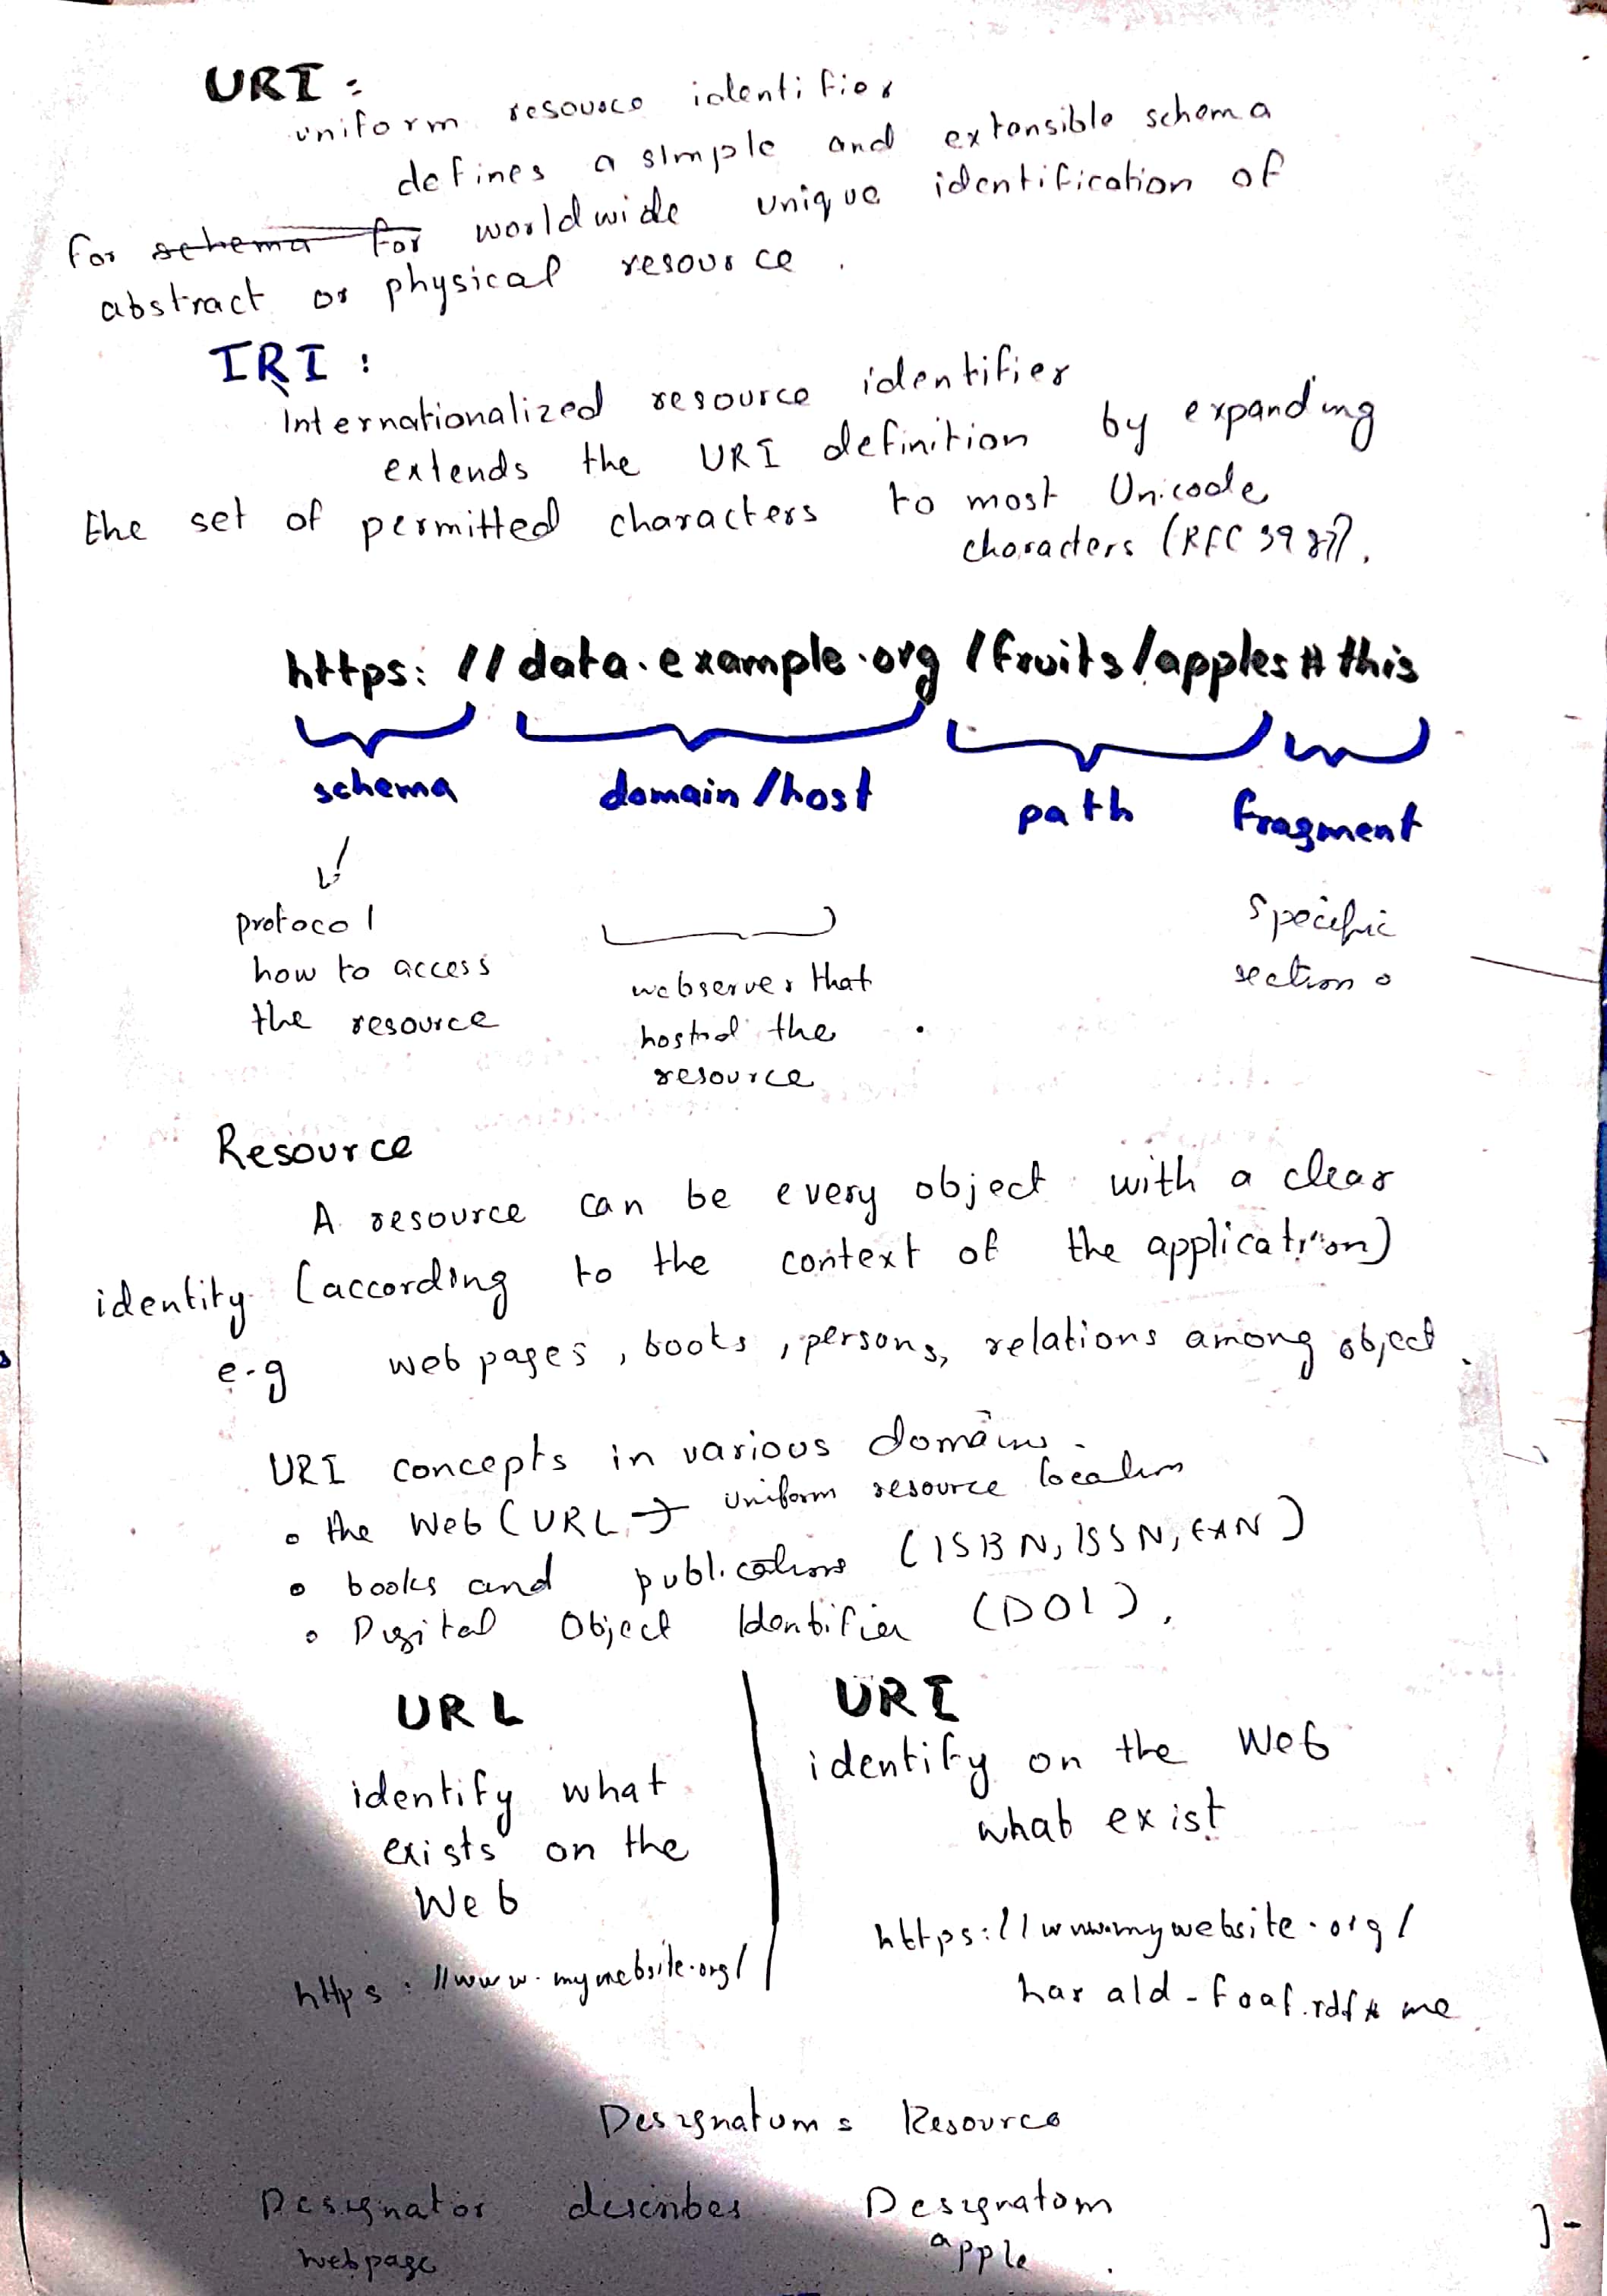 URI :
uniform resource identifier
defines a simple and extensible schema
for schema for worldwide unique identification of
abstract or physical resource .
IRI :
Internationalized resource identifier
extends the URI definition by expanding
the set of permitted characters to most Unicode
characters (RFC 3987).
https: //data.example.org /fruits/apples#this
schema domain/host path fragment
protocol
how to access
the resource
webserver that
hosted the
resource
specific
section
Resource
A resource can be every object with a clear
identity (according to the context of the application)
e.g web pages, books, persons, relations among object.
URI concepts in various domains.
• the Web (URL → uniform resource location
• books and publications (ISBN, ISSN, EAN)
• Digital Object Identifier (DOI).
URL
identify what
exists on the
Web
https://www.mywebsite.org/
URI
identify on the Web
what exist
https://www.mywebsite.org/
harald-foaf.rdf#me
Designatum = Resource
Designator describes Designatom
webpage apple